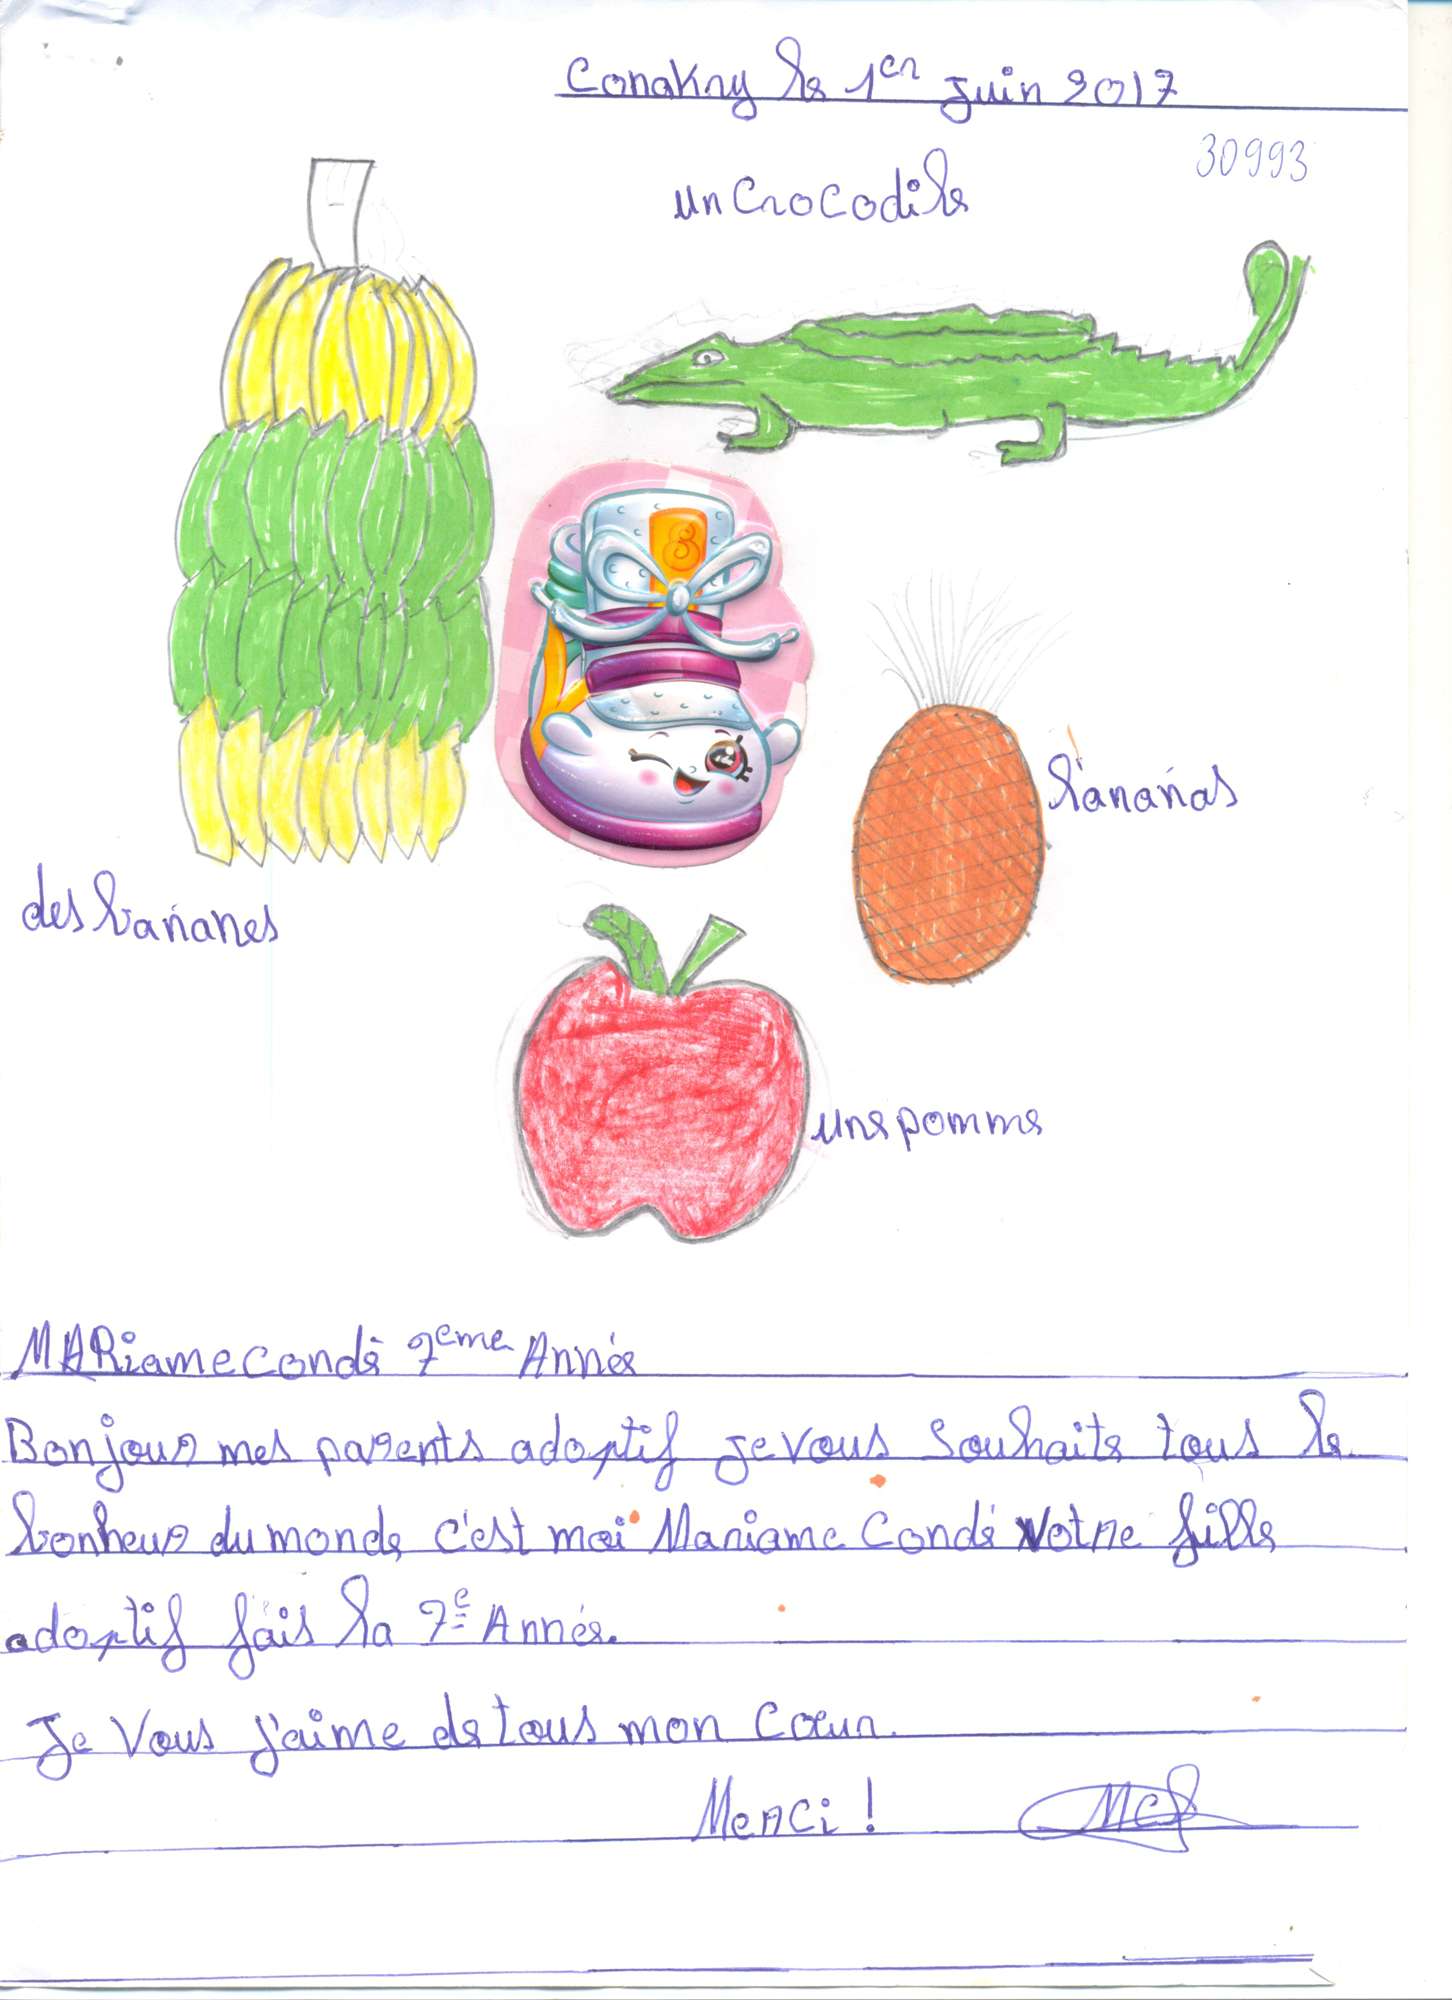 Conakry le 1er juin 2017
30993
un crocodile
l'ananas
des bananes
une pomme
MARiame condé 7eme Année
Bonjour mes parents adoptif je vous souhaite tous le
bonheur du monde c'est moi Mariame Condé votre fille
adoptif fais la 7e Année.
Je vous j'aime de tous mon cœur.
Merci !